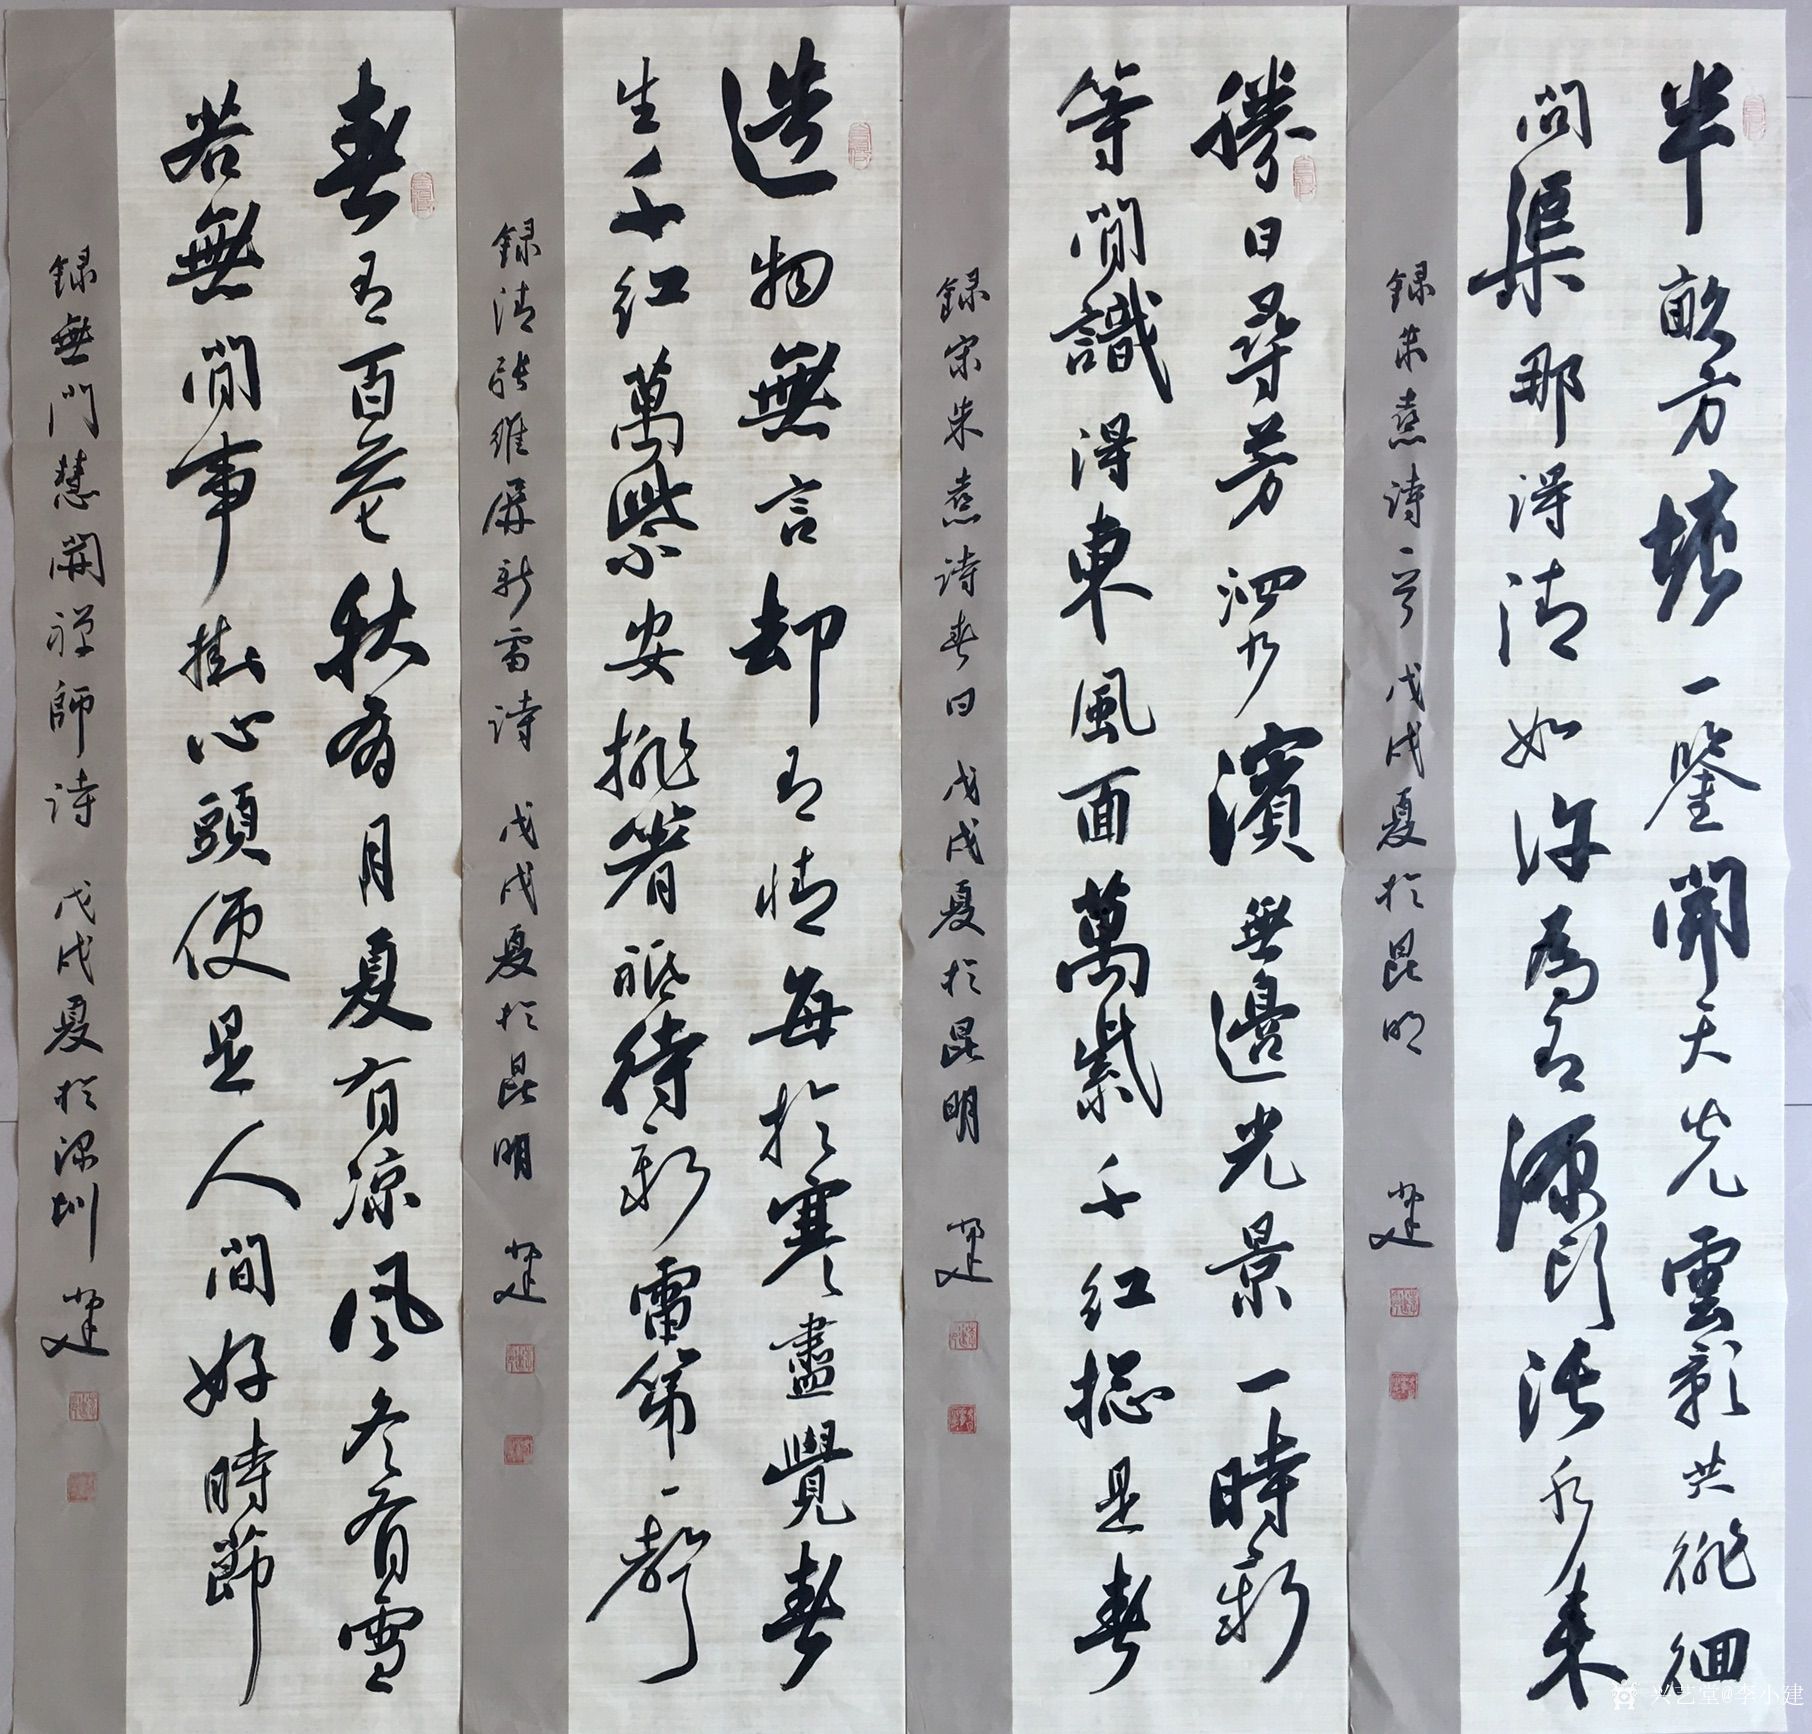 半畝方塘一鑒開天光雲影共徘徊
問渠那得清如許爲有源頭活水來
録朱熹詩一首 戊戌夏於昆明 小建
勝日尋芳泗水濱無邊光景一時新
等閒識得東風面萬紫千紅捴是春
録宋朱熹詩春日 戊戌夏於昆明 小建
造物無言却有情每於寒盡覺春
生千紅萬紫安排著祗待新雷第一聲
録清張維屏新雷詩 戊戌夏於昆明 小建
春有百花秋有月夏有凉風冬有雪
若無閒事掛心頭便是人間好時節
録無門慧開禪師詩 戊戌夏於深圳 小建
兴艺堂@李小建